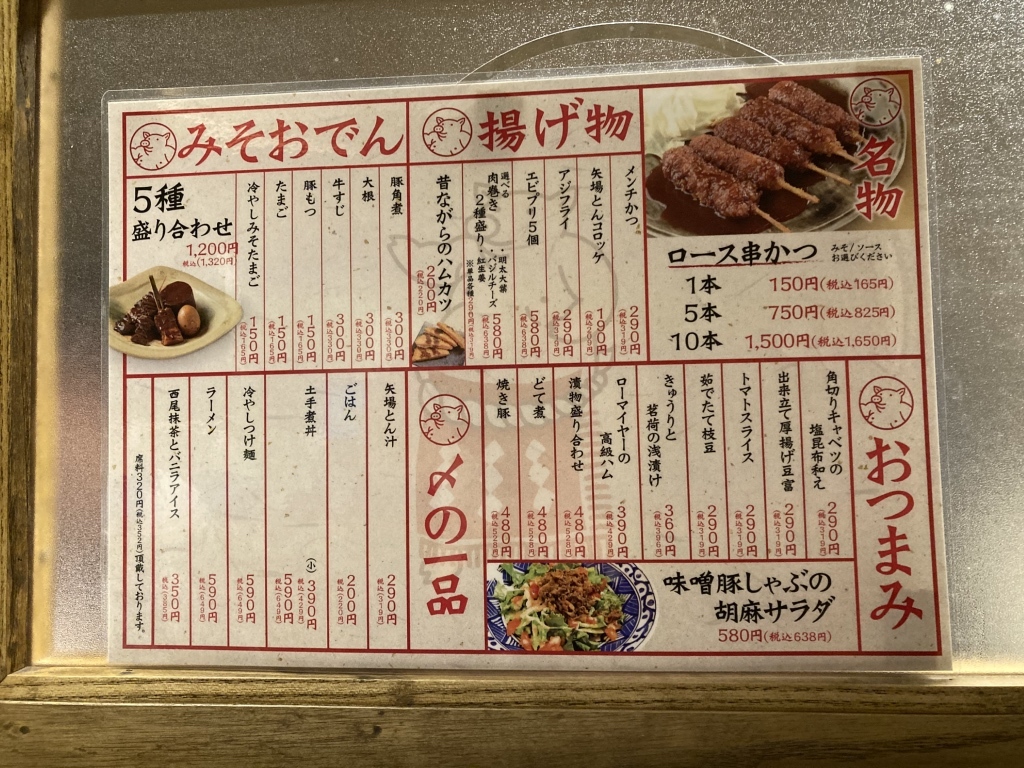 名物
ロース串かつ
みそ/ソース
お選びください
1本 150円(税込165円)
5本 750円(税込825円)
10本 1,500円(税込1,650円)
揚げ物
メンチかつ 290円(税込319円)
矢場とんコロッケ 190円(税込209円)
アジフライ 290円(税込319円)
エビプリ5個 580円(税込638円)
選べる
肉巻き2種盛り 580円(税込638円)
・明太大葉
・バジルチーズ
・紅生姜
※単品各種290円(税込319円)
昔ながらのハムカツ 200円(税込220円)
みそおでん
豚角煮 300円(税込330円)
大根 300円(税込330円)
牛すじ 300円(税込330円)
豚もつ 150円(税込165円)
たまご 150円(税込165円)
冷やしみそたまご 150円(税込165円)
5種
盛り合わせ
1,200円
税込(1,320円)
おつまみ
角切りキャベツの
塩昆布和え 290円(税込319円)
出来立て厚揚げ豆富 290円(税込319円)
トマトスライス 290円(税込319円)
茹でたて枝豆 290円(税込319円)
きゅうりと
茗荷の浅漬け 360円(税込396円)
ローマイヤーの
高級ハム 390円(税込429円)
漬物盛り合わせ 480円(税込528円)
どて煮 480円(税込528円)
焼き豚 480円(税込528円)
味噌豚しゃぶの
胡麻サラダ
580円(税込638円)
〆の一品
矢場とん汁 290円(税込319円)
ごはん 200円(税込220円)
土手煮丼 (小)390円(税込429円)
590円(税込649円)
冷やしつけ麺 590円(税込649円)
ラーメン 590円(税込649円)
西尾抹茶とバニラアイス 350円(税込385円)
席料320円(税込352円)頂戴しております。